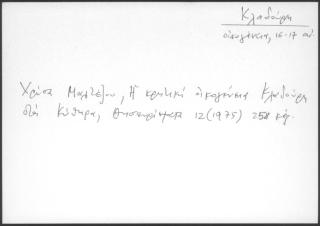 Κλαδούρη
οικογένεια, 16-17 αι.
Χρύσα Μαλτέζου, Η κρητική οικογένεια Κλαδούρη
στα Κύθηρα, Θησαυρίσματα 12 (1975) 258 κέξ.